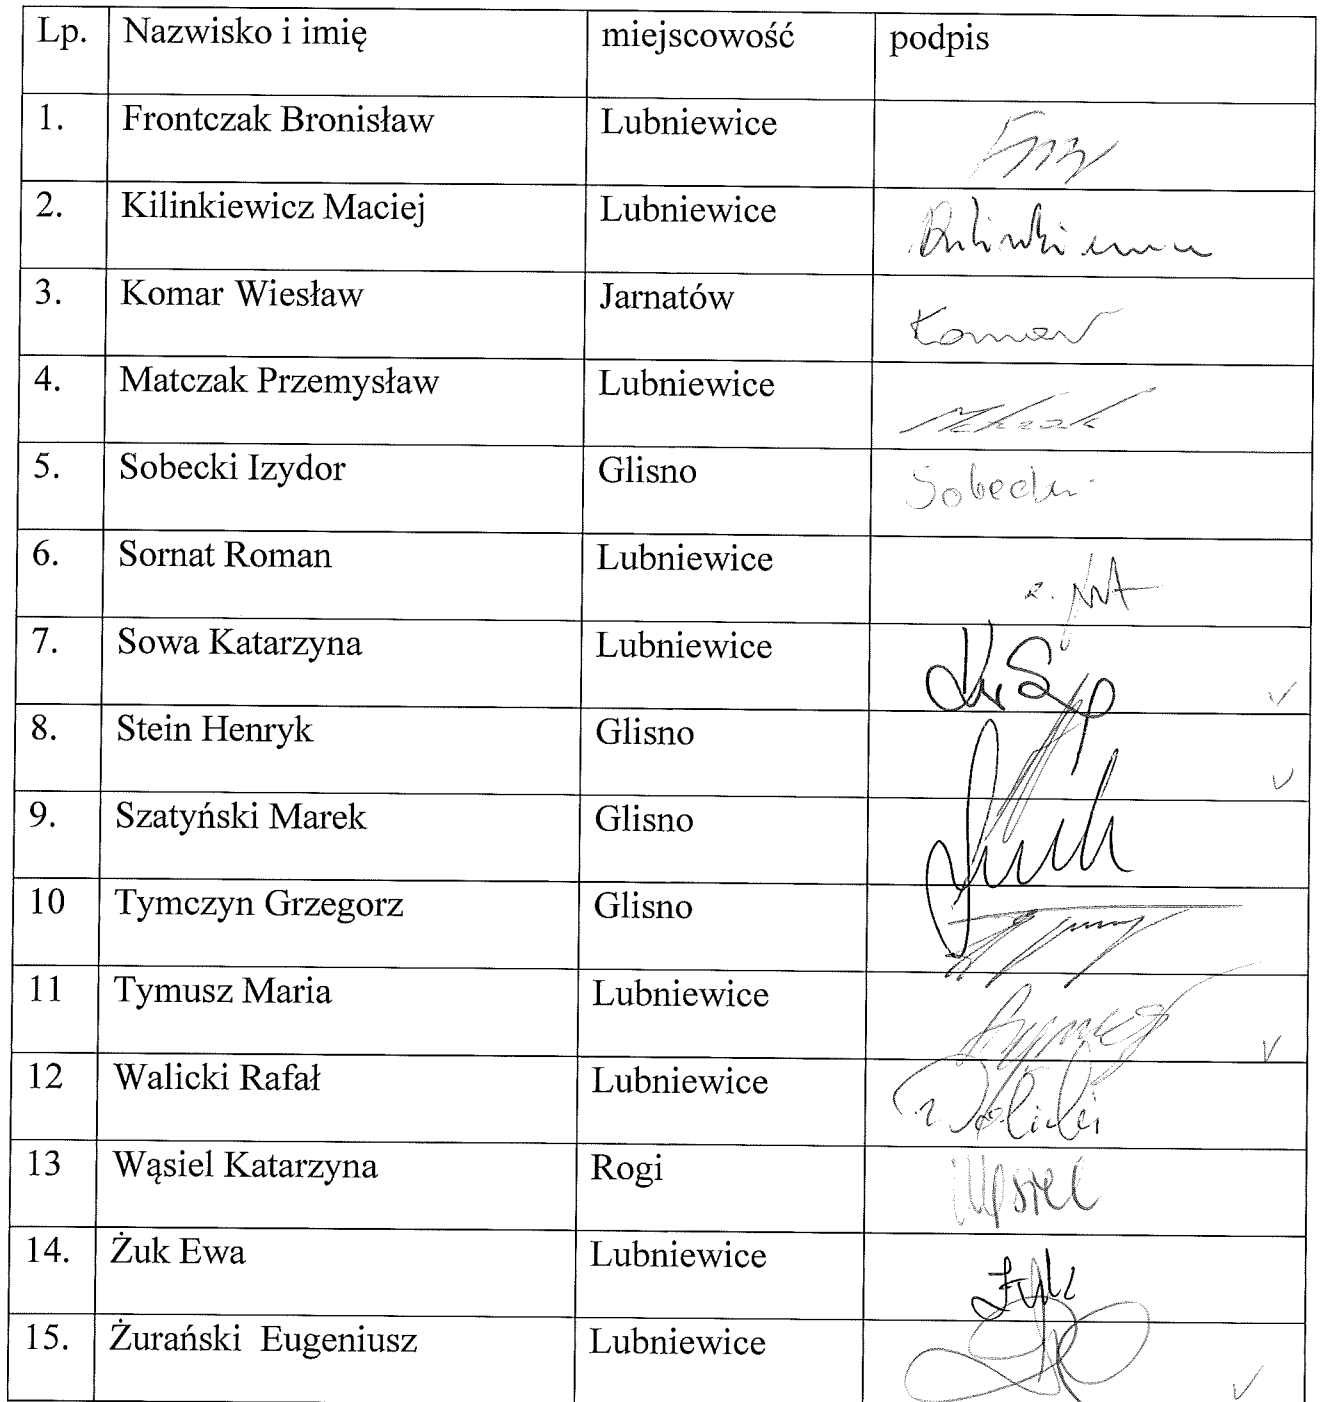 Lp. Nazwisko i imię miejscowość podpis
1. Frontczak Bronisław Lubniewice
2. Kilinkiewicz Maciej Lubniewice
3. Komar Wiesław Jarnatów Komar
4. Matczak Przemysław Lubniewice
5. Sobecki Izydor Glisno Sobecki
6. Sornat Roman Lubniewice
7. Sowa Katarzyna Lubniewice
8. Stein Henryk Glisno
9. Szatyński Marek Glisno
10 Tymczyn Grzegorz Glisno
11 Tymusz Maria Lubniewice
12 Walicki Rafał Lubniewice Walicki
13 Wąsiel Katarzyna Rogi Wąsiel
14. Żuk Ewa Lubniewice Żuk
15. Żurański Eugeniusz Lubniewice